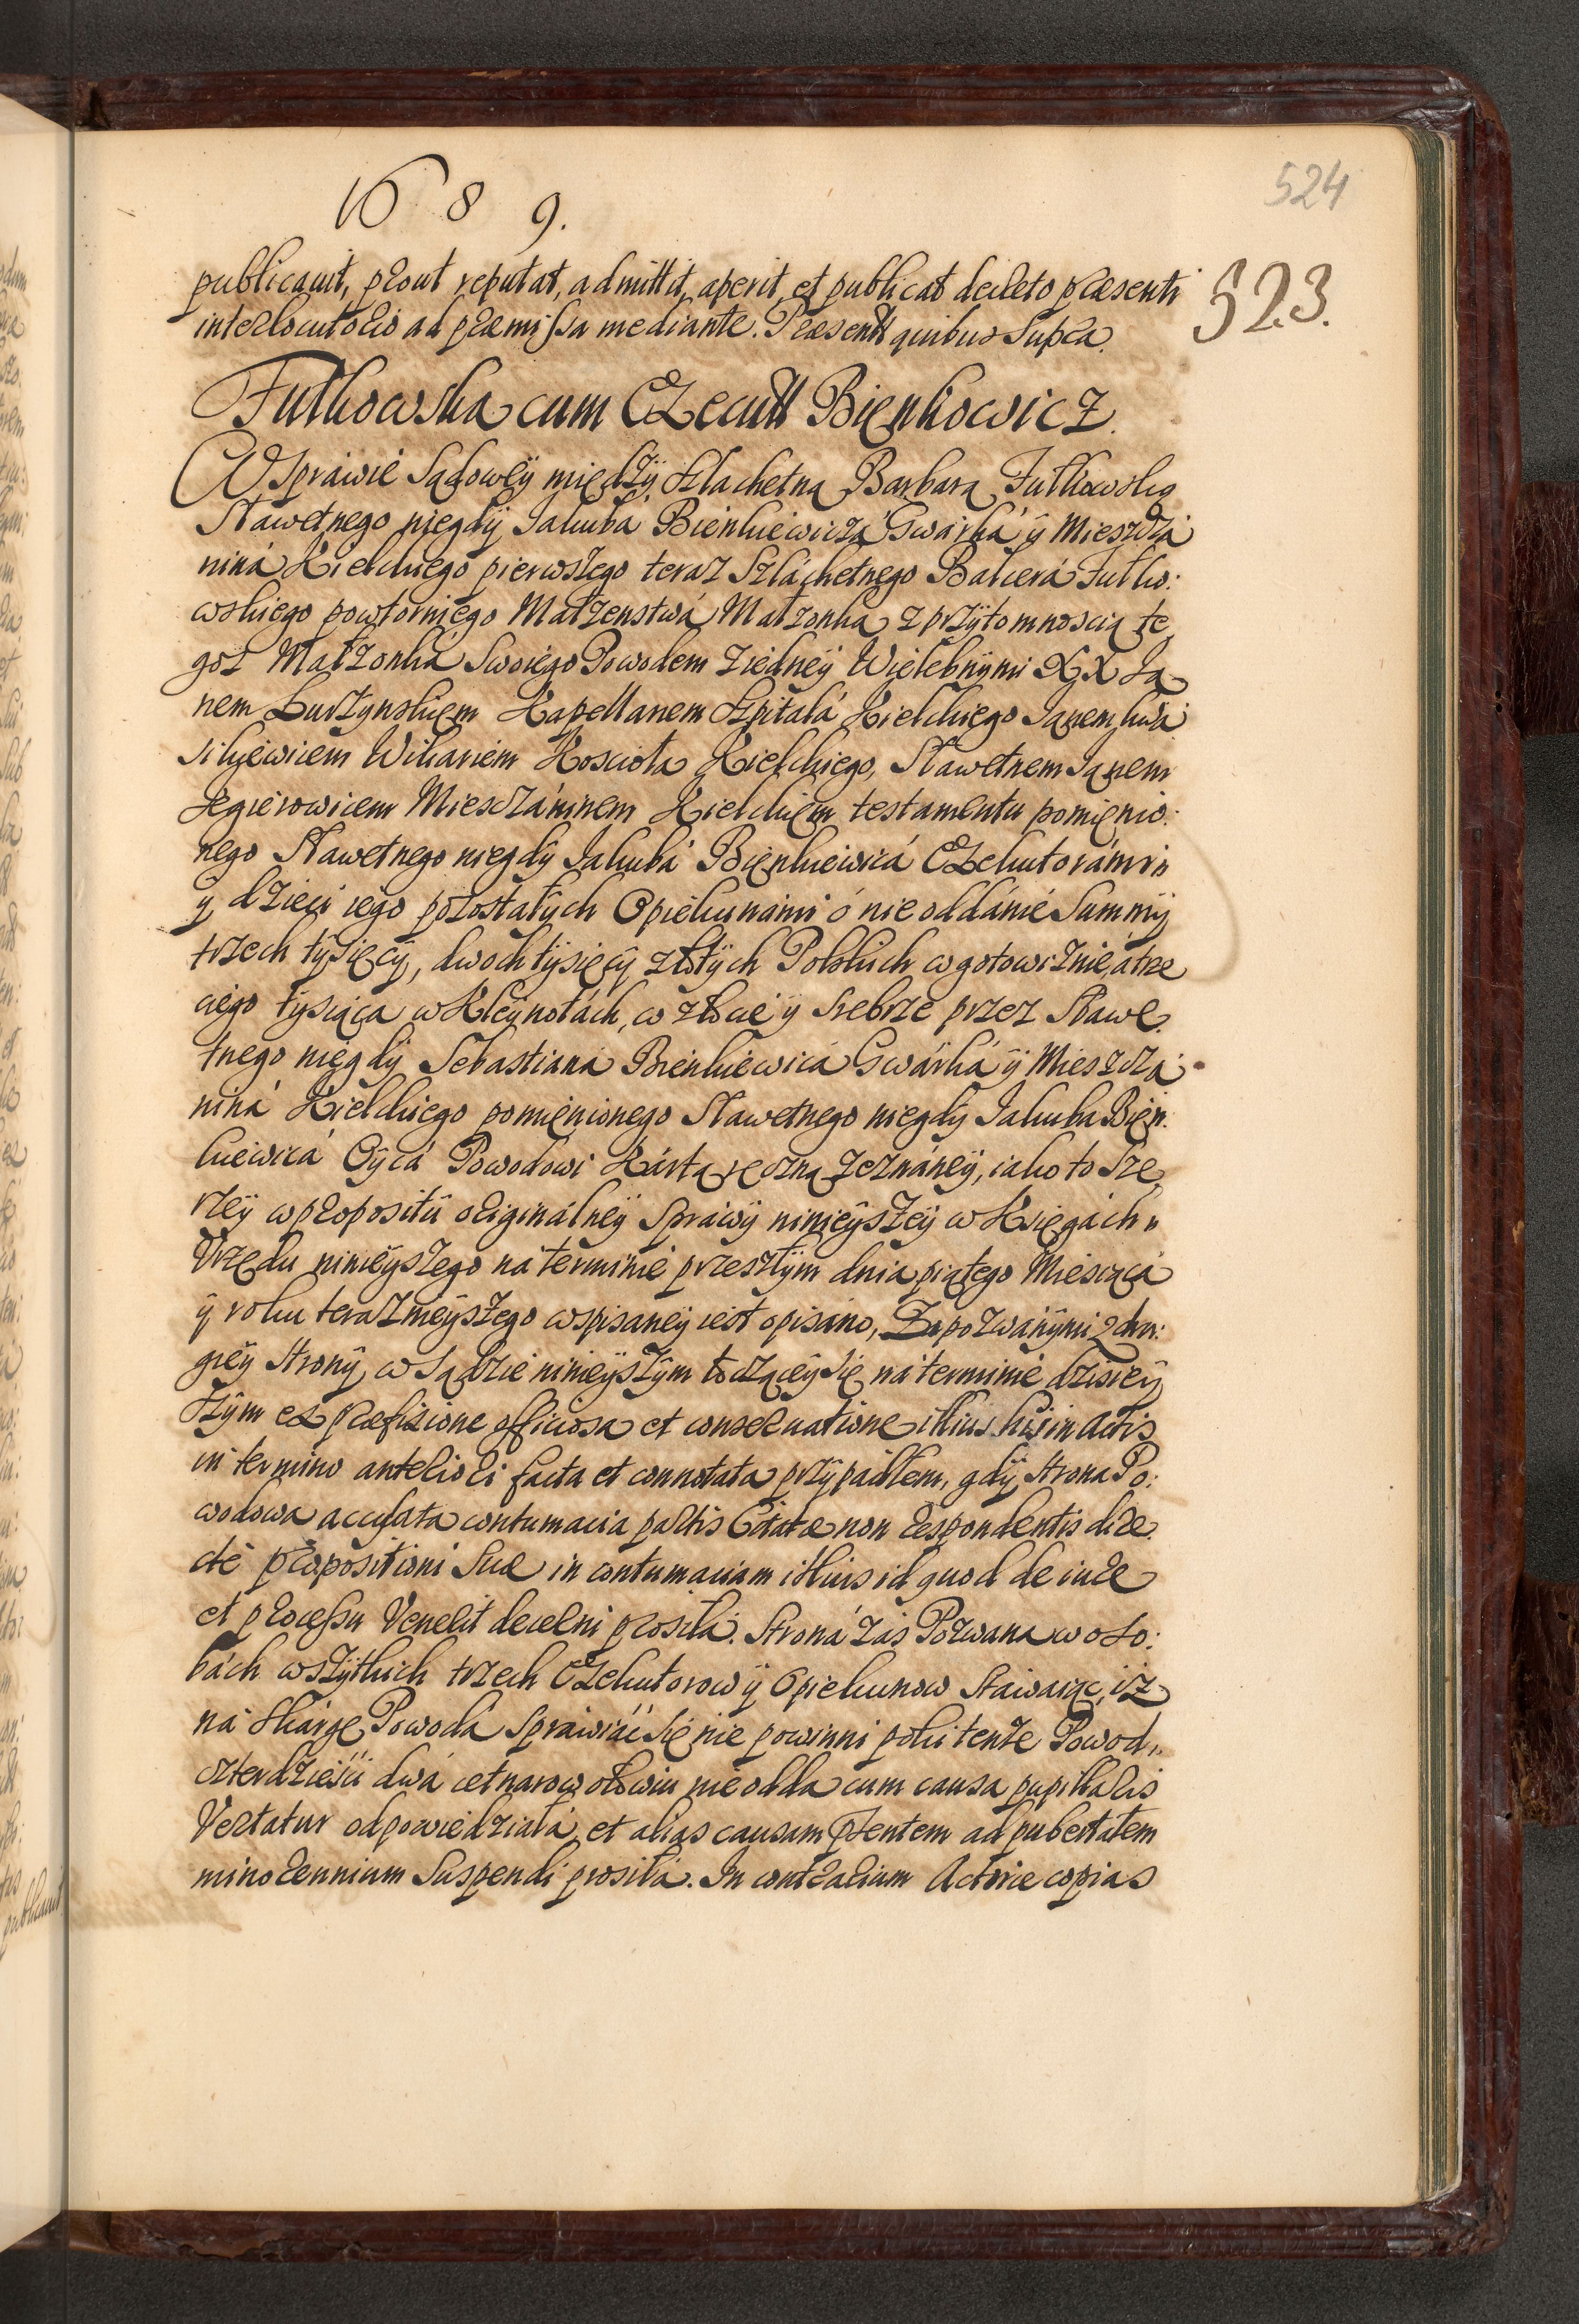 1689.
524
publicauit, prout reputat, admittit, aperit, et publicat decreto præsenti
523.
interlocutorio ad præmissa mediante. Præsentt quibus Supra.
Futkowska cum Exccutt Bięnkowicz.
W Spráwie Sądowey między Szlachetną Barbarą Futkowską
Sławetnego niegdy Iakubá Bienkiewiczá Gwarká y Mieszczá
niná Kielckiego pierwszego teraz Szláchetnego Balcerá Futko:
wskiego powtornięgo Małżenstwá Małżonką z przytomnoscią te
goż Małżonká Swoięgo Powodem z iedney Wielebnymi XX Ia
nem Burżynskięm Kapellanem Szpitalá Kielckiego Ianem
Wikariem Koscioła Kielckiego, Sławetnem Ianem
Segierowicem Miesczáninem Kielckięm testamentu pomięnio:
nego Sławetnego niegdy Iakubá Bięnkiewicá Exekutorámi
y dzieci iego pozostałych Opiekunámi ó nie oddánie Summy
trzech tysięcy, dwoch tysięcy złotych Polskich w gotowiznie, á trze
ciego tysiąca w Kleynotách, w złocie y Srebrze przez Sławe
tnego niegdy Sebastianá Bienkiewicá Gwárká y Mieszczá
niná Kielckiego pomięnionego Sławetnego niegdy Iakuba Bięn:
kiewicá Oycá Powodowi Kártą ręczną zeznáney, iako to Sze
rzey w propositii originálney Spráwy ninieyszey w Księgách
Vrzędu ninieyszego ná terminie przeszłym dnia piątego Miesiącá
y roku terazneyszego wpisaney iest opisáno, Zapozwánymi z dru:
giey Strony, w Sądzie ninieyszym toczącey się ná terminie dzisiey
szym ex præfixione officiosa et conseruatione illius hic in Actis
in termino anteriori facta et connotata przypadłem, gdy Strona Po:
wodowa accusata contumacia partis Citatæ non respondentis dire
cte propositioni Suæ in contumaciam illius id quod de iure
et processu Venerit decerni prosiłá. Stroná záś Pozwana w oso:
bách wszytkich trzech Exekutorow y Opiekunow Stáwaiąc, iż
ná skárgę Powodá Spráwiáć się nie powinni poki tenże Powod
czterdzieści dwá cetnarow ołowiu nie odda cum causa pupillaris
Vertatur odpowiedziałá, et alias causam præsentem ad pubertatem
minorennium Suspendi prosiłá. In contrarium Actorie copias